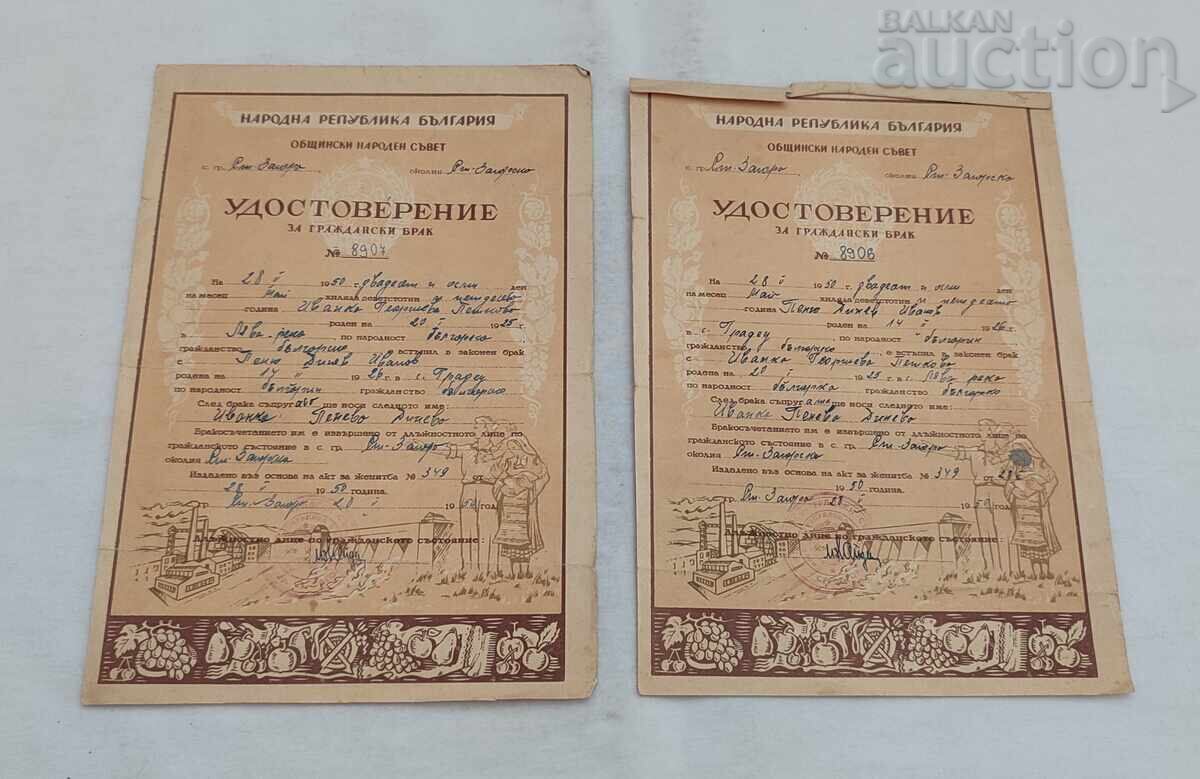 BALKAN
auction
НАРОДНА РЕПУБЛИКА БЪЛГАРИЯ
ОБЩИНСКИ НАРОДЕН СЪВЕТ
с. гр. Ст. Загора околия Ст. Загорска
УДОСТОВЕРЕНИЕ
ЗА ГРАЖДАНСКИ БРАК
№ 8907
На 28 V 1950 г. двадесет и осми ден
на месец Май хиляда деветстотин и петдесета
година Иванка Георгиева Пешкова
роден на 20 V 1925 г.
в с. река, по народност българка
гражданство българско, е встъпила в законен брак
с Пеню Иванов
родена на 1928 г. в с. Традец
по народност българин гражданство българско
След брака съпруг ще носи следното име:
Иванка Пенева Динева
Бракосъчетанието им е извършено от длъжностното лице по
гражданското състояние в с. гр. Ст. Загора
околия Ст. Загорска
Издадено въз основа на акт за женитба № 349 от
28 V 1950 година.
гр. Ст. Загора 20 V 1950 год.
Длъжностно лице по гражданското състояние:
НАРОДНА РЕПУБЛИКА БЪЛГАРИЯ
ОБЩИНСКИ НАРОДЕН СЪВЕТ
с. гр. Ст. Загора околия Ст. Загорска
УДОСТОВЕРЕНИЕ
ЗА ГРАЖДАНСКИ БРАК
№ 8906
На 28 V 1950 г. двадесет и осми ден
на месец Май хиляда деветстотин и петдесета
година Пеню Динев Иванов
роден на 14 V 1926 г.
в с. Традец, по народност българин
гражданство българско, е встъпил в законен брак
с Иванка Георгиева Пешкова
родена на 20 V 1925 в с. река
по народност българка гражданство българско
След брака съпругата ще носи следното име:
Иванка Пенева Динева
Бракосъчетанието им е извършено от длъжностното лице на
гражданското състояние в с. гр. Ст. Загора
околия Ст. Загорска
Издадено въз основа на акт за женитба № 349 от 28 V
1950 година.
гр. Ст. Загора 28 V 1950 год.
Длъжностно лице по гражданското състояние: